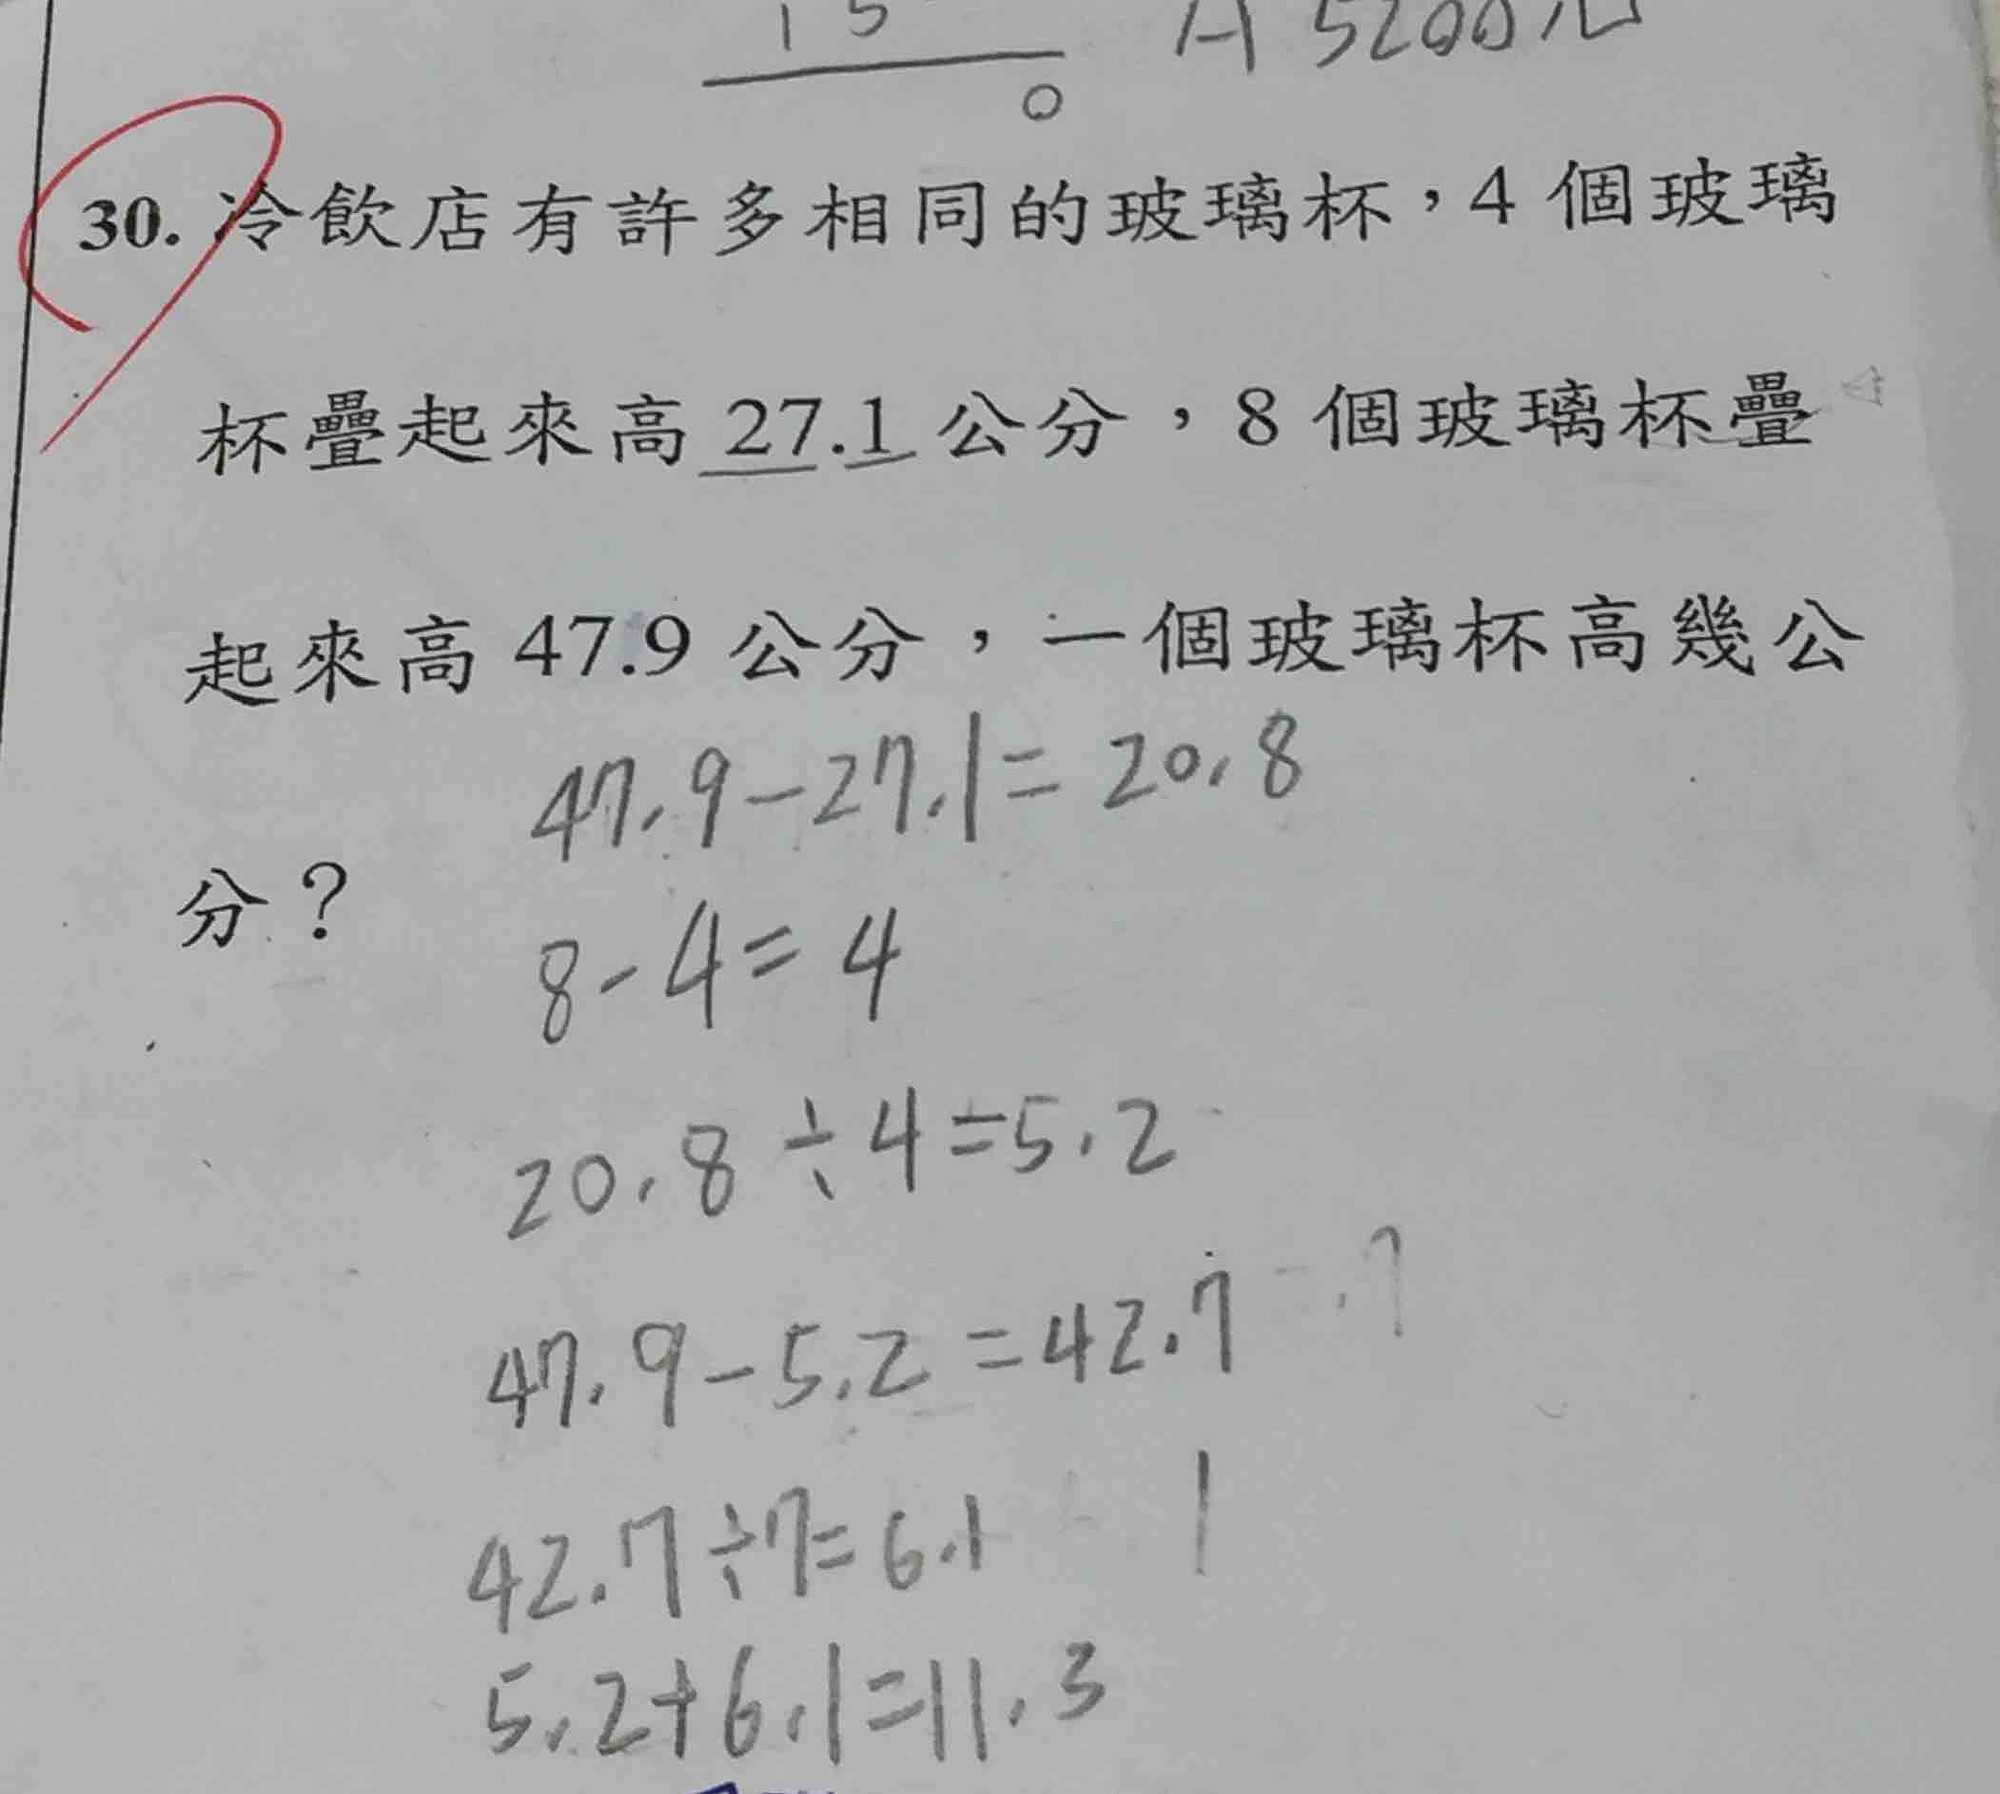 15
0
A 5200元
30. 冷飲店有許多相同的玻璃杯，4 個玻璃
杯疊起來高 27.1 公分，8 個玻璃杯疊
起來高 47.9 公分，一個玻璃杯高幾公
分？
47.9-27.1=20.8
8-4=4
20.8÷4=5.2
47.9-5.2=42.7
42.7÷7=6.1
5.2+6.1=11.3